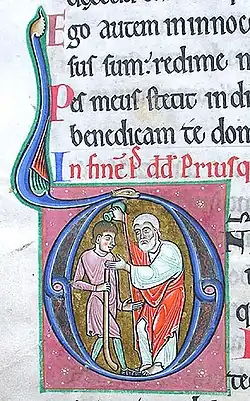 Ego autem in innoce
sus sum: redime m
Pes meus stetit in di
benedicam te dom
In finē p̄ dd̄ Priusq